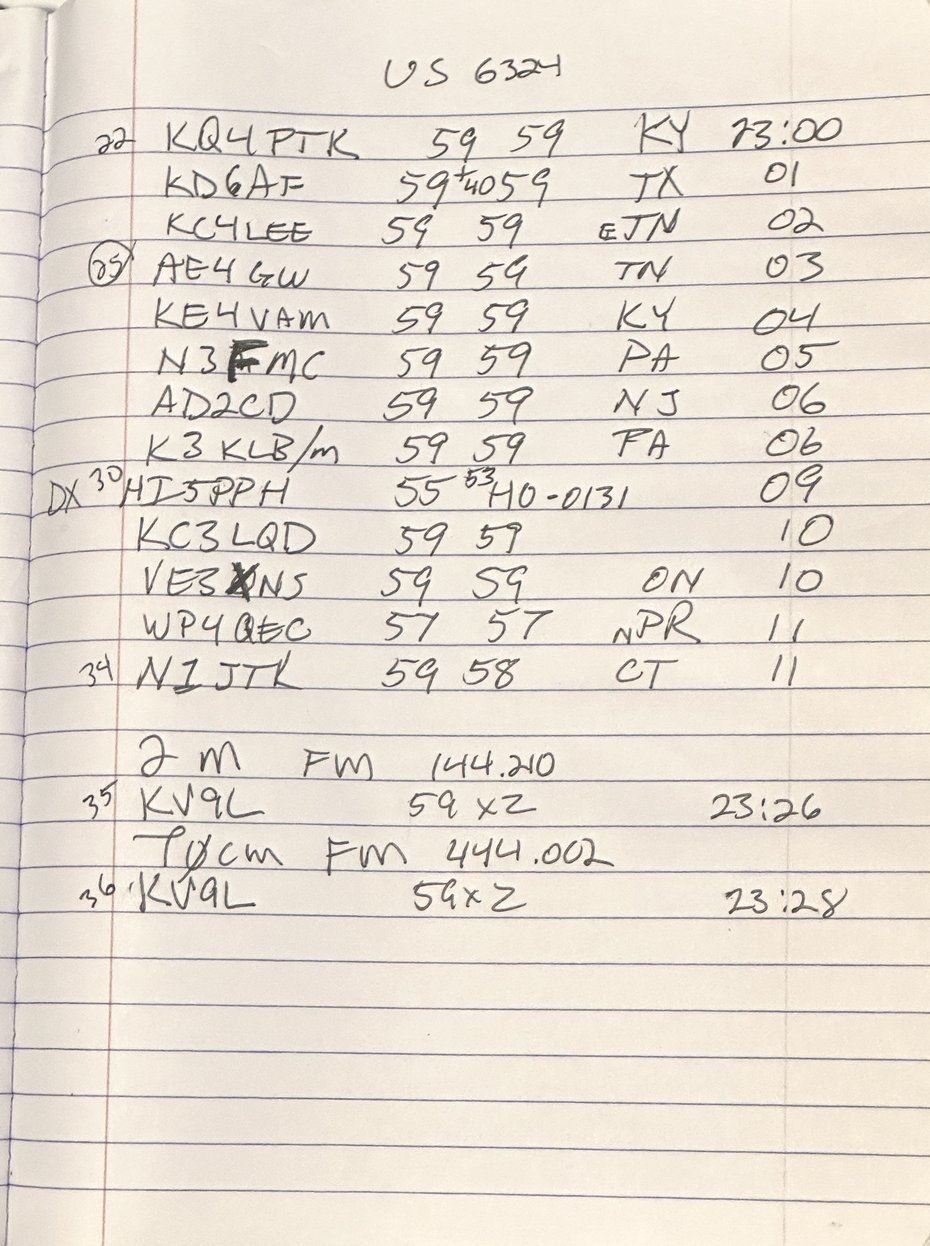 US 6324
22 KQ4PTK 59 59 KY 23:00
KD6AF 59+40 59 TX 01
KC4LEE 59 59 ETN 02
25 AE4GW 59 59 TN 03
KE4VAM 59 59 KY 04
N3FMC 59 59 PA 05
AD2CD 59 59 NJ 06
K3KLB/m 59 59 PA 06
DX 30 HI5PPH 55 53 HO-0131 09
KC3LQD 59 59 10
VE3XNS 59 59 ON 10
WP4QEC 57 57 NPR 11
34 N1JTK 59 58 CT 11
2m FM 144.210
35 KV9L 59 x2 23:26
7Øcm FM 444.002
36 KV9L 59x2 23:28